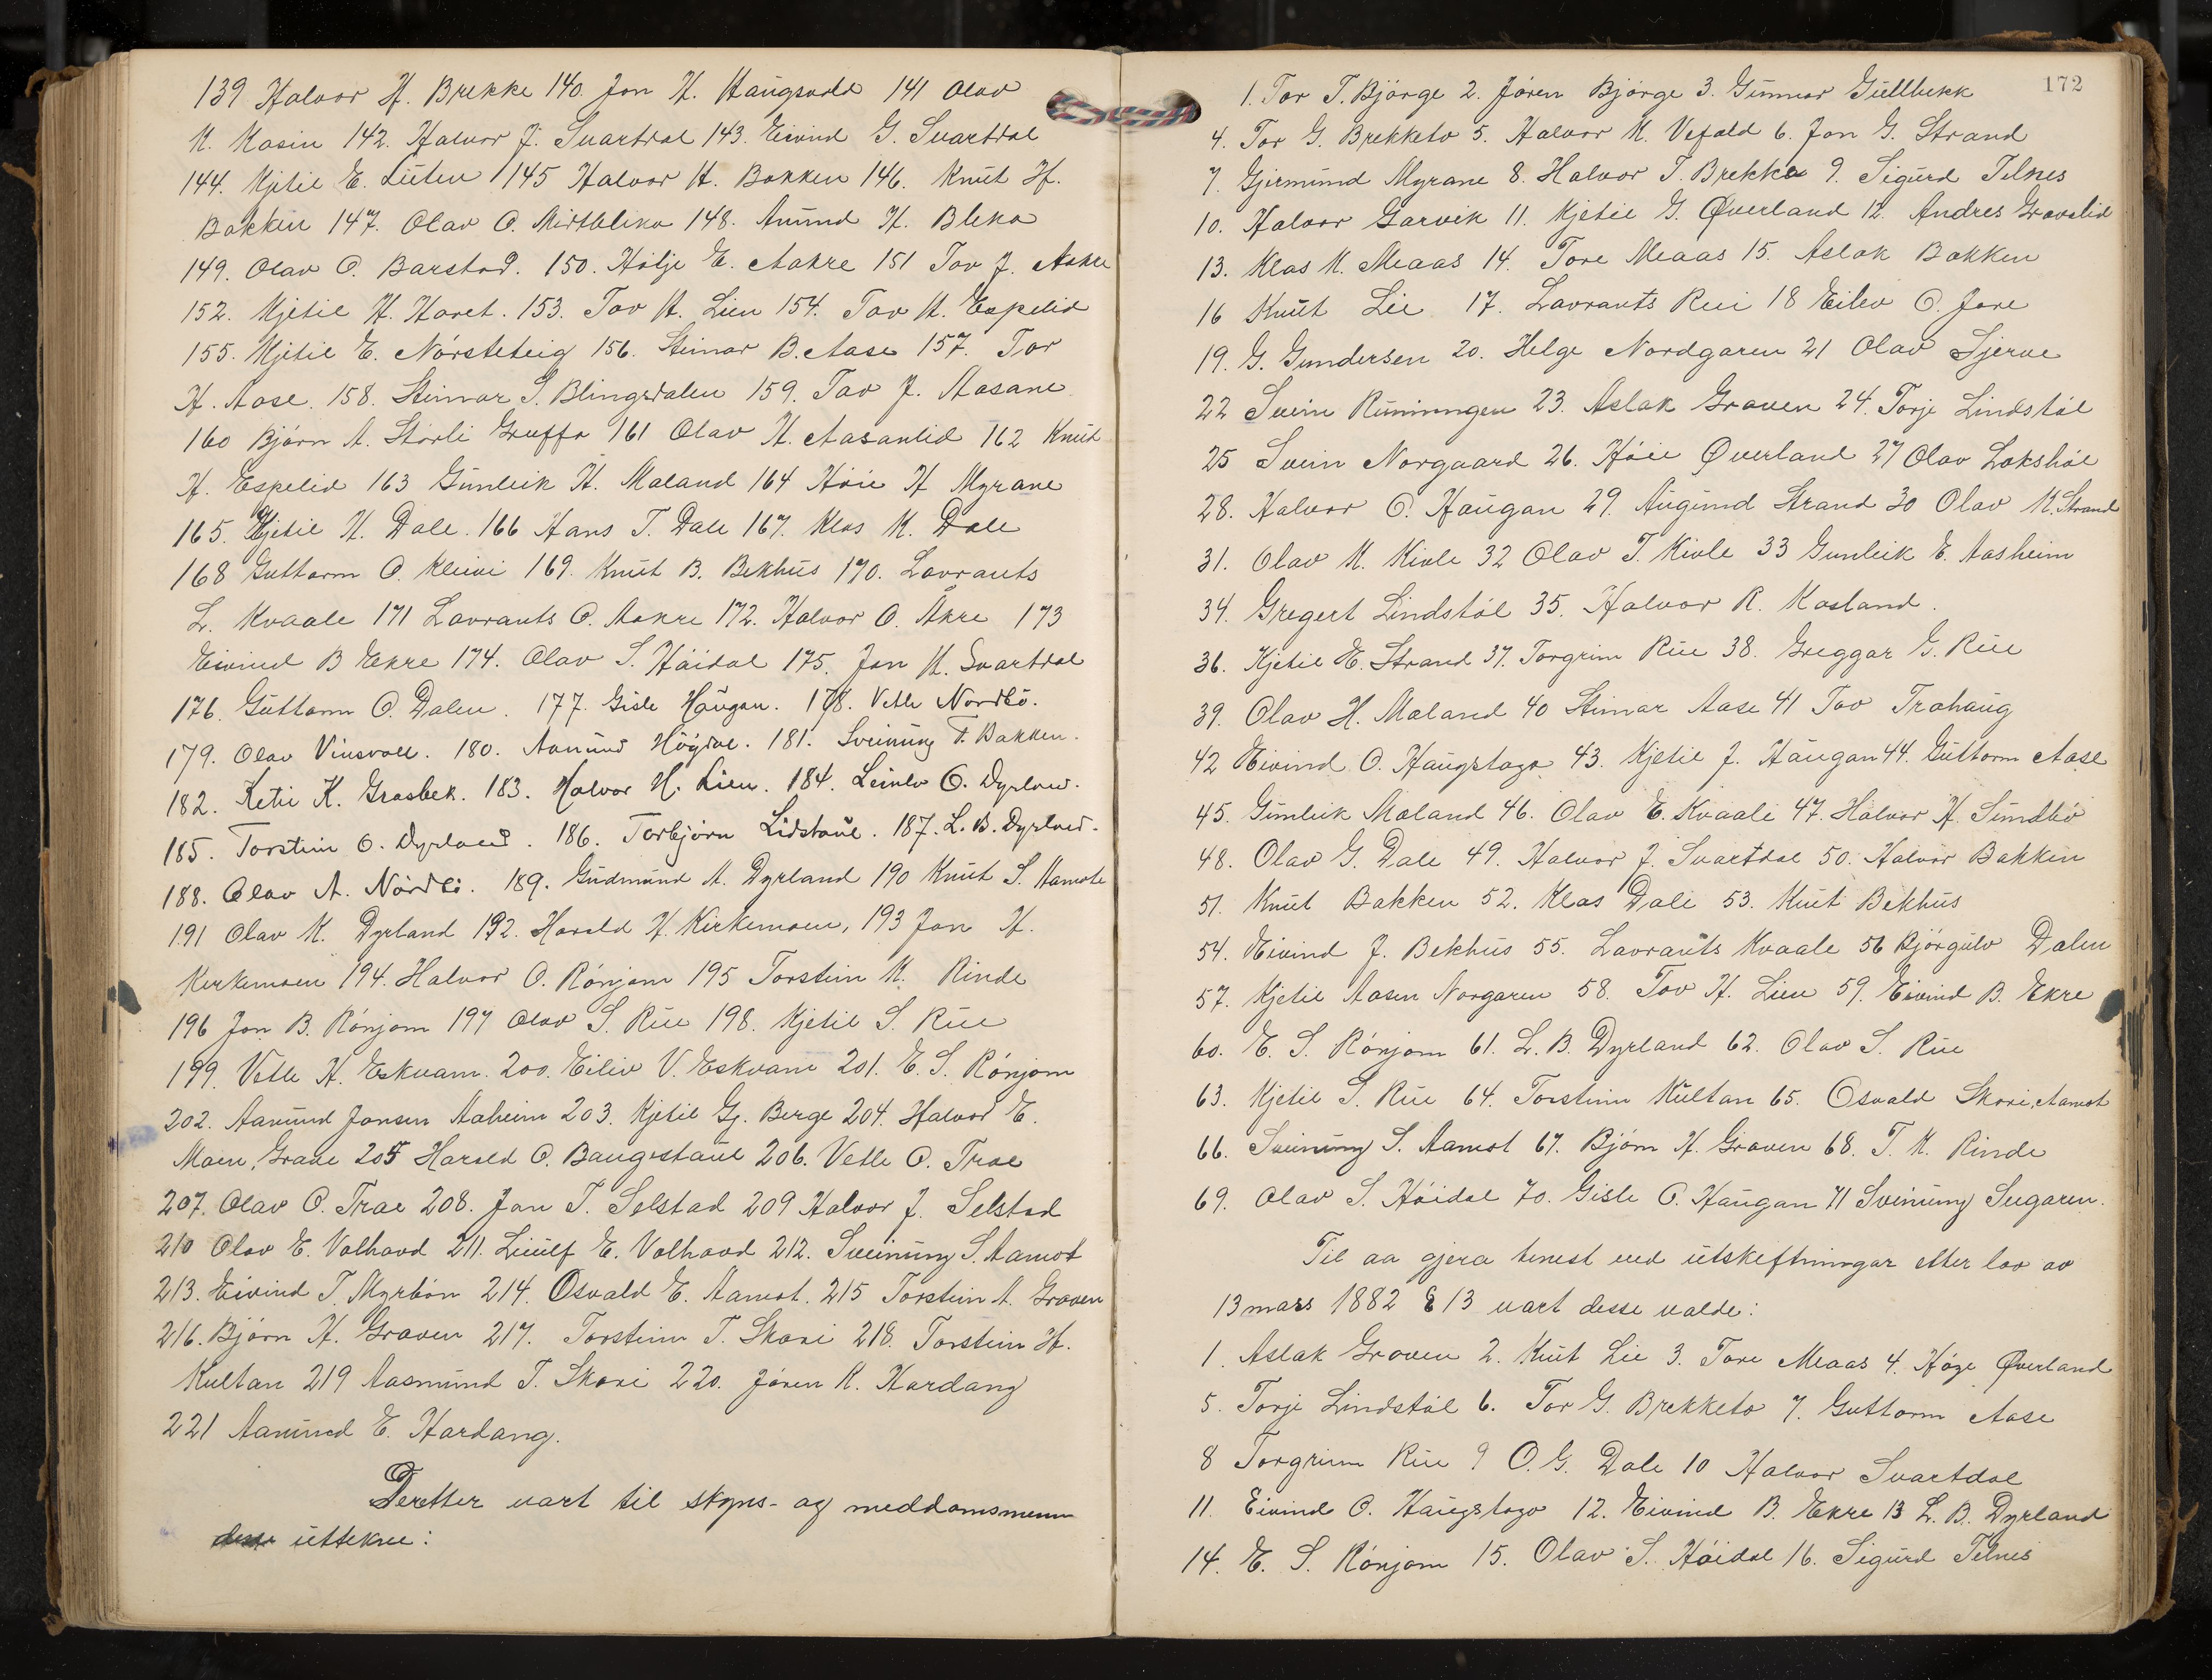 139 Halvor H. Brekke 140. Jon H. Haugsvold 141 Olav
K. Kasin 142. Halvor J. Svartdal 143. Eivind G. Svartdal
144. Kjetil E. Luten 145 Halvor H. Bakken 146. Knut H.
Bakken 147. Olav O. Mirtbleka 148. Amund H. Bleka
149. Olav O. Barstad. 150. Hølje E. Aakre 151 Tov J. Aakre
152. Kjetil H. Haret. 153. Tov H. Lien 154. Tov H. Espelid
155. Kjetil E. Nørsteteig 156. Steinar B. Aase 157. Tor
H. Aase. 158. Steinar S. Blingsdalen 159. Tov J. Aasane
160 Bjørn A. Størli Gruffa 161 Olav H. Aasanlid 162 Knut
H. Espelid 163 Gunleik H. Maland 164 Høie H Myrane
165. Kjetil H. Dale. 166 Hans T. Dale 167. Klas K. Dale
168 Guttorm O. Kleivi 169. Knut B. Bekhus 170. Lavrants
L. Kvaale 171 Lavrants O. Aakre 172. Halvor O. Åkre 173
Eivind B Ekre 174. Olav S. Høidal 175. Jon H. Svartdal
176. Guttorm O. Dalen. 177. Gisle Haugan. 178. Vetle Nordbø.
179. Olav Vinsvall. 180. Aanund Høgdal. 181. Sveinung T. Bakken.
182. Ketil K. Grasbek. 183. Halvor H. Lien. 184. Leiulv O. Dyrland.
185. Torstein O. Dyrland. 186. Torbjørn Lidstaul. 187. L. B. Dyrland.
188. Olav A. Nordbø. 189. Gudmund A. Dyrland 190 Knut S. Aamot
191 Olav K. Dyrland 192. Harald H. Kirkemoen, 193 Jon H.
Kirkemoen 194. Halvor O. Rønjom 195 Torstein K. Rinde
196 Jon B. Rønjom 197 Olav S. Rue 198. Kjetil S. Rue
199. Vetle H. Eskvam. 200. Eiliv V. Eskvam 201. E. S. Rønjom
202. Aanund Jonsen Aaheim 203. Kjetil Gj. Berge 204. Halvor E.
Moen, Grave 205 Harald O. Baugstaul 206. Vetle O. Trae
207. Olav O. Trae 208. Jon T. Selstad 209 Halvor J. Selstad
210 Olav E. Valhovd 211. Liulf E. Valhovd 212. Sveinung S. Aamot
213. Eivind T. Myrbøn 214. Osvald E. Aamot. 215 Torstein A. Graven
216. Bjørn H. Graven 217. Torstein T. Skori 218. Torstein H.
Kultan 219 Aasmund T. Skori 220. Jøren K. Hardang
221 Aanund E. Hardang.
Deretter vart til skyns- og meddomsmenn
uttekne:
172
1. Tor T. Bjørge 2. Jøren Bjørge 3. Gunnar Gullbekk
4. Tor G. Brekketo 5. Halvor K. Vefald 6. Jon G. Strand
7. Gjermund Myrane 8. Halvor T. Brekka 9. Sigurd Telnes
10. Halvor Garvik 11. Kjetil G. Øverland 12. Andres Gravalid
13. Klas K. Meaas 14. Tore Meaas 15. Aslak Bakken
16 Knut Lie 17. Lavrants Rui 18 Eilev O. Jore
19. G. Gundersen 20. Helge Nordgaren 21 Olav Tjerve
22 Svein Runningen 23. Aslak Graven 24. Torje Lindstøl
25 Svein Norgaard 26. Høie Øverland 27 Olav Lokshøl
28. Halvor O. Haugan 29. Augund Strand 30 Olav K. Strand
31. Olav K. Kivle 32 Olav T. Kivle 33 Gunleik E. Aasheim
34. Gregert Lindstøl 35. Halvor R. Kasland.
36. Kjetil E. Strand 37. Torgrim Rue 38. Greggar G. Rue
39. Olav H. Maland 40 Steinar Aase 41 Tov Trahaug
42 Eivind O. Haugstogo 43. Kjetil J. Haugan 44. Guttorm Aase
45. Gunleik Maland 46. Olav E. Kvaale 47. Halvor H. Sundbø
48. Olav G. Dale 49. Halvor J. Svartdal 50. Halvor Bakken
51. Knut Bakken 52. Klas Dale 53. Knut Bekhus
54. Eivind J. Bekhus 55. Lavrants Kvaale 56 Bjørgulv Dalen
57. Kjetil Aasen Norgaren 58. Tov H. Lien 59. Eivind B. Ekre
60. E. S. Rønjom 61. L. B. Dyrland 62. Olav S. Rue
63. Kjetil S. Rue 64. Torstein Kultan 65. Osvald Skori, Aamot
66. Sveinung S. Aamot 67. Bjørn H. Graven 68. T. K. Rinde
69. Olav S. Høidal 70. Gisle O. Haugan 71 Sveinung Sugaren.
Til aa gjera tenest ved utskiftningar etter lov av
13 mars 1882 § 13 vart desse valde:
1. Aslak Graven 2. Knut Lie 3. Tore Meaas 4. Høge Øverland
5. Torje Lindstøl 6. Tor G. Brekketo 7. Guttorm Aase
8 Torgrim Rue 9 O. G. Dale 10 Halvor Svartdal
11. Eivind O. Haugstogo 12. Eivind B. Ekre 13 L. B. Dyrland
14. E. S. Rønjom 15. Olav S. Høidal 16. Sigurd Telnes